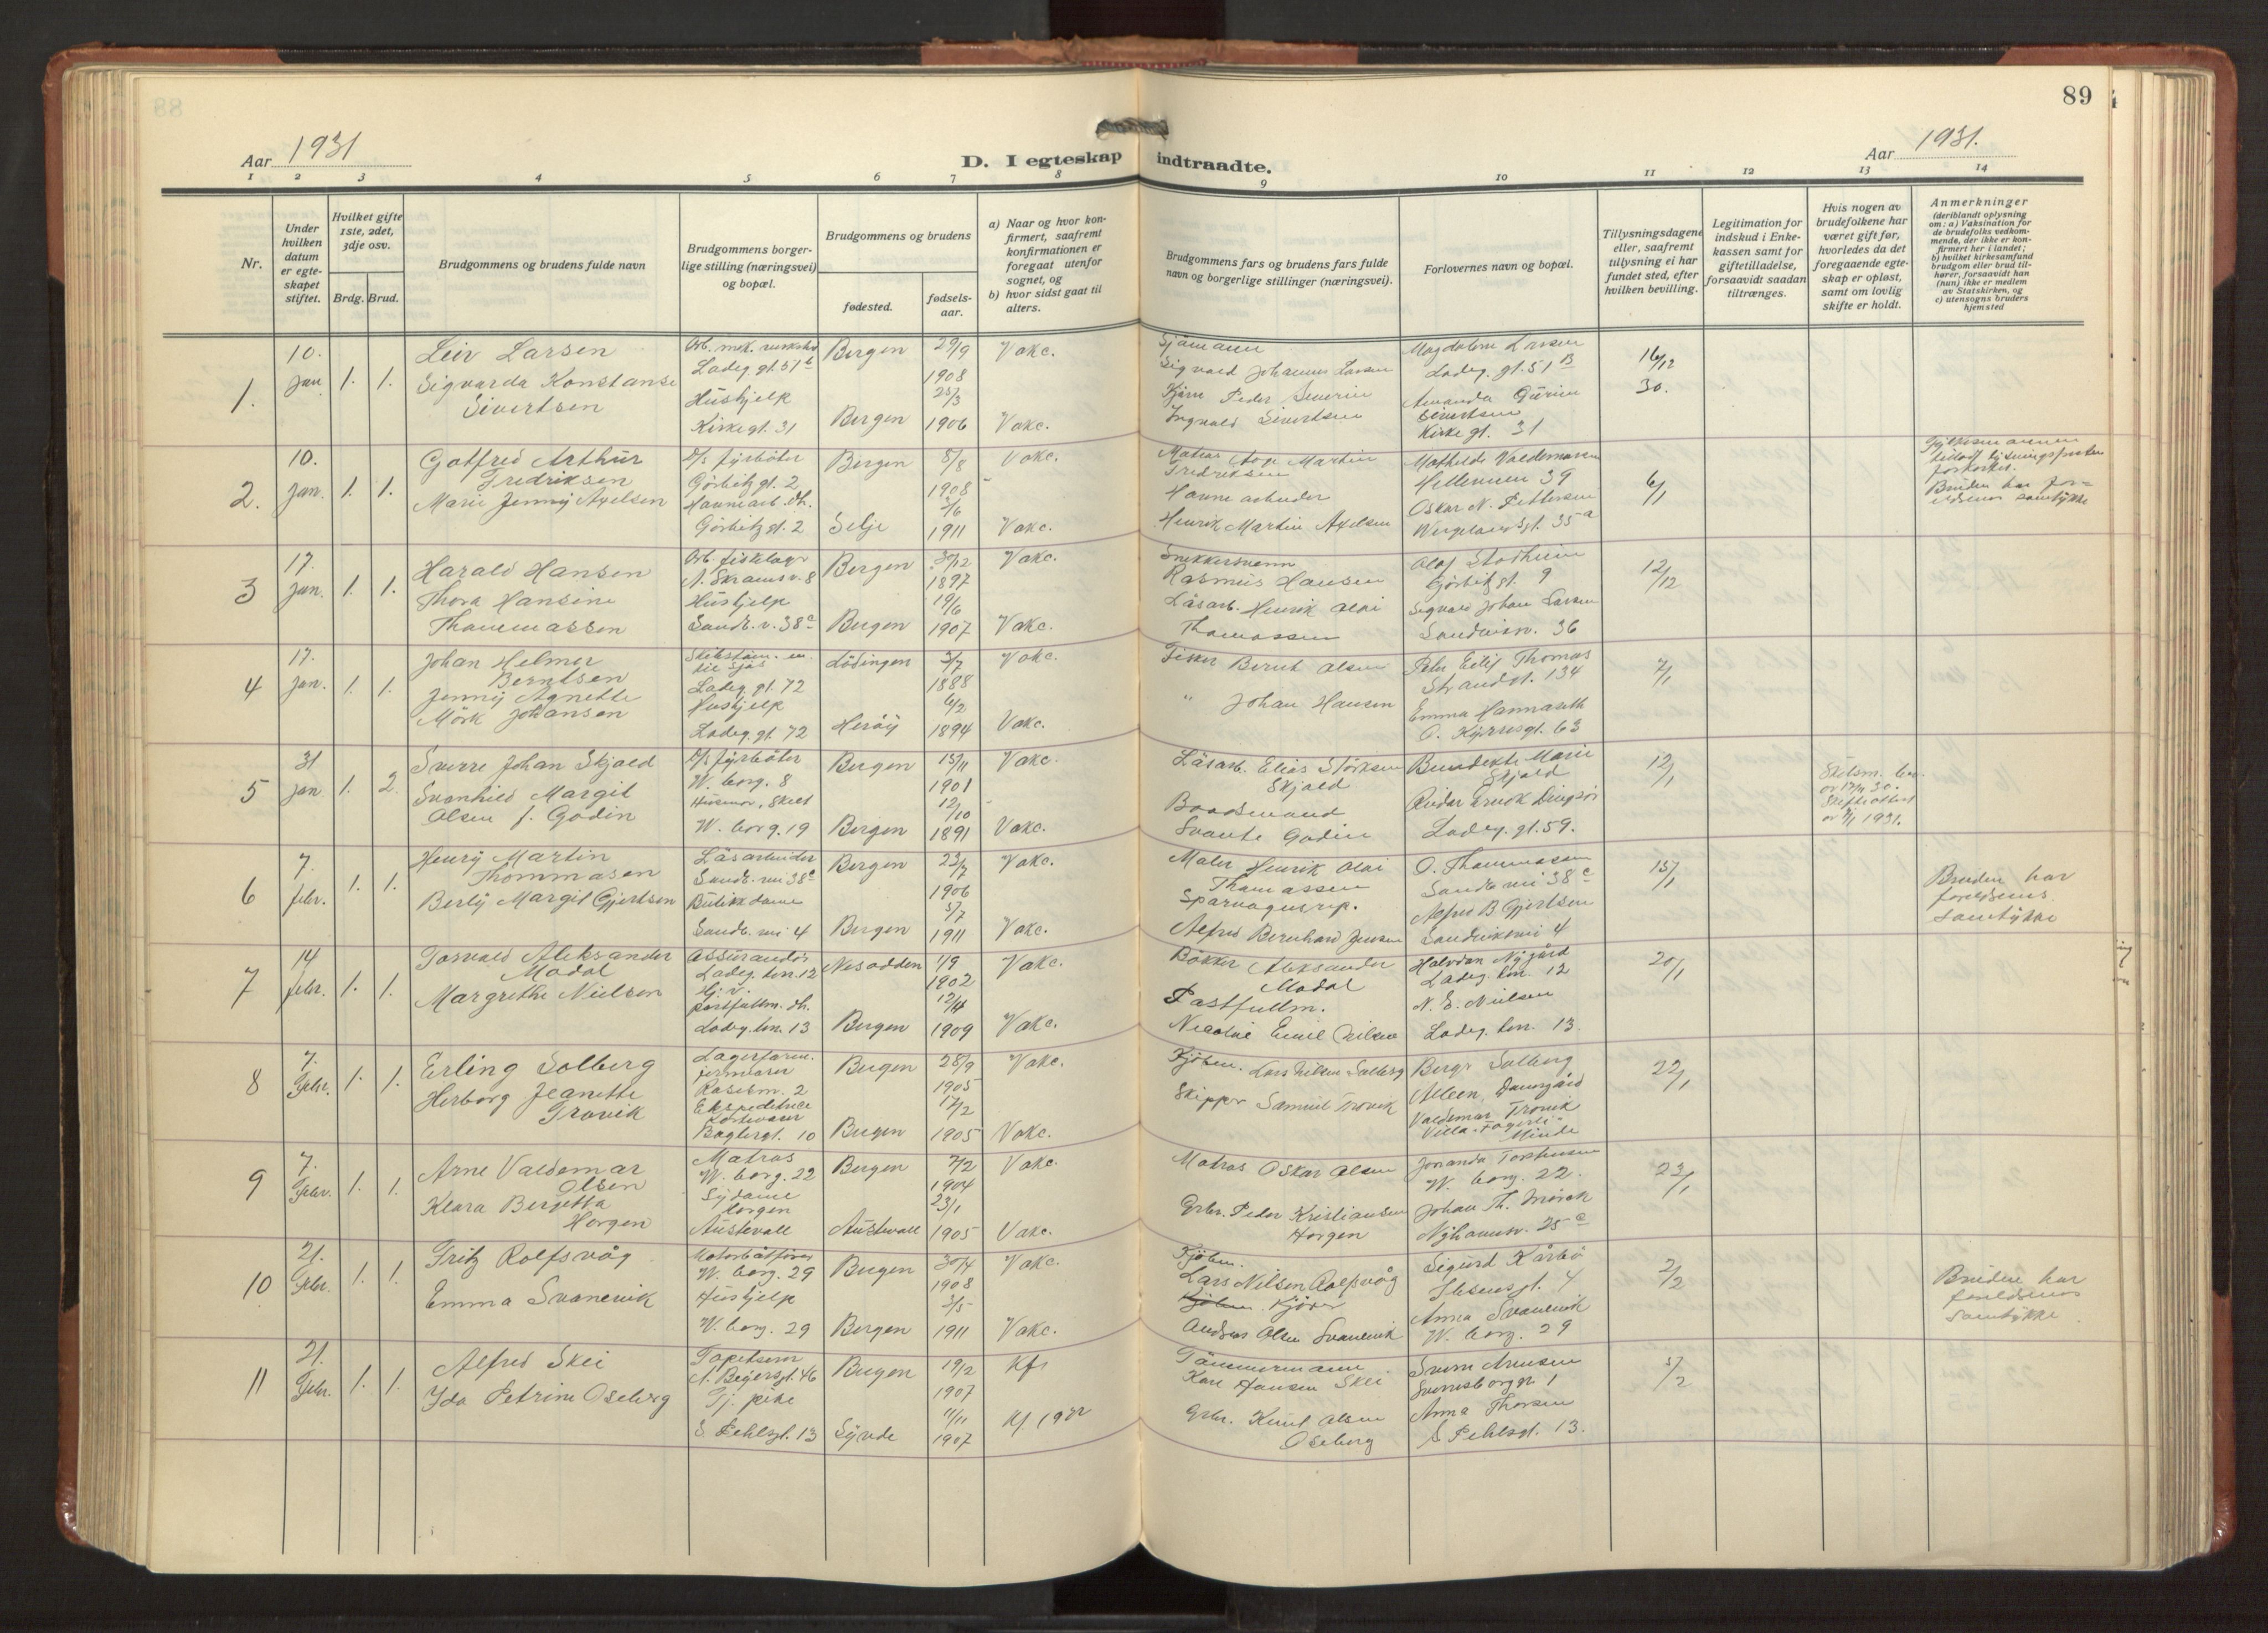 89
Aar 1931
D. I egteskap indtraadte.
Aar 1931.
1 2 3 4 5 6 7 8 9 10 11 12 13 14
Nr.
Under hvilken datum er egteskapet stiftet.
Hvilket gifte 1ste, 2det, 3dje osv.
Brdg. Brud.
Brudgommens og brudens fulde navn
Brudgommens borgerlige stilling (næringsvei) og bopæl.
Brudgommens og brudens
fødested.
fødselsaar.
a) Naar og hvor konfirmert, saafremt konfirmationen er foregaat utenfor sognet, og
b) hvor sidst gaat til alters.
Brudgommens fars og brudens fars fulde navn og borgerlige stillinger (næringsvei).
Forlovernes navn og bopæl.
Tillysningsdagene eller, saafremt tillysning ei har fundet sted, efter hvilken bevilling.
Legitimation for indskud i Enkekassen samt for giftetilladelse, forsaavidt saadan tiltrænges.
Hvis nogen av brudefolkene har været gift før, hvorledes da det foregaaende egteskap er opløst, samt om lovlig skifte er holdt.
Anmerkninger
(deriblandt oplysning om: a) Vaksination for de brudefolks vedkommende, der ikke er konfirmert her i landet;
b) hvilket kirkesamfund brudgom eller brud tilhører, forsaavidt han (hun) ikke er medlem av Statskirken, og
c) utensogns bruders hjemsted
1. 10. Jan 1. 1.
Leir Larsen
Sigvarda Konstanse
Sivertsen
Ladeg. gt. 51 b
Hushjelp
Kirkegt. 31
Bergen 29/9 1908 Vakc.
Bergen 25/3 1906 Vakc.
Sjömann
Sigvald Johannes Larsen
Peder Severin
Ingvald Sivertsen
Magdalene Larsen
Ladeg. gt. 51 B
Amanda
Sivertsen
Kirkegt. 31
16/12 30.
2. 10. Jan. 1. 1.
Gotfred Arthur
Fredriksen
Marie Jenny Axelsen
D/s fyrböter
Görbitzgt. 2
Havnearb. dh.
Görbitzgt. 2
Bergen 8/8 1908 Vakc.
Selje 3/6 1911 Vakc.
Matros Aage Martin
Fredriksen
Havnearbeider
Henrik Martin Axelsen
Mathilde Valdemarsen
Hellemuen 39
Oskar N. Pettersen
Wergelandsgt. 35 a
6/1
Bruden har foreldrenes samtykke
3 17. Jan. 1. 1.
Harald Hansen
Thora Hansine
Thommassen
Arb. fiskelager
A. Skramsv. 8
Hushjelp
Sandv. v. 38 c
Bergen 30/12 1897 Vakc.
Bergen 19/6 1907 Vakc.
Snekkersvenn
Rasmus Hansen
Läsarb. Henrik Olai
Thomassen
Olaf Stadheim
Görbitzgt. 9
Sigvald Johan Larsen
Sandviksv. 36
12/12
4 17. Jan. 1. 1.
Johan Helmer
Berntsen
Jenny Agnette
Mörk Johansen
Ladeg. gt. 72
Hushjelp
Ladeg. gt. 72
Lödingen 3/7 1888 Vakc.
Heröy 6/2 1894 Vakc.
Fisker Bernt Olsen
" Johan Hansen
Peter Eilif Thomas
Strandgt. 134
Emma Hannaseth
O. Kyrresgt. 63
7/1
5 31 Jan 1. 2.
Sverre Johan Skjold
Svanhild Margit
Olsen f. Godin
D/s fyrböter
W. borg. 8
Husmor, Skilt
W. borg. 19
Bergen 15/11 1901 Vakc.
Bergen 12/10 1891 Vakc.
Läsarb. Elias Störksen
Skjold
Baadsmand
Svante Godin
Benedikte Marie
Skjold
Ladeg. gt. 59.
12/1
Skilsm. bev.
av 17/11 30.
Skifteattest
av 9/1 1931.
6 7. febr. 1. 1.
Henry Martin
Thommasen
Berly Margit Gjertsen
Läsarbeider
Sandv. vei 38 c
Butikkdame
Sandv. vei 4
Bergen 23/7 1906 Vakc.
Bergen 5/7 1911 Vakc.
Maler Henrik Olai
Thomassen
Sparvognrep.
Alfred Bernhard Jensen
O. Thommassen
Sandv. vei 38 c
Alfred B Gjertsen
Sandviksvei 4
15/1
Bruden har
foreldrenes
samtykke
7 14 febr. 1. 1.
Torvald Aleksander
Modal
Margrethe Nielsen
Assurandör
Ladeg. ten. 12
Hj. v.
postfullm. dh.
Ladeg. ten. 13
Nesodden 1/9 1902 Vakc.
Bergen 12/4 1909 Vakc.
Bökker Aleksander
Modal
Postfullm.
Nicolai Emil Nilsen
Halvdan Nygård
Ladeg. ten. 12
N. E. Nielsen
Ladeg. ten. 13.
20/1
8 7. Febr. 1. 1.
Erling Solberg
Herborg Jeanette
Trovik
Lagerform.
jernvarer
Rosenb. 2
Ekspeditrice
Kortevarer
Bøglergt. 10
Bergen 28/9 1905 Vakc.
Bergen 17/2 1905 Vakc.
Kjöbm. Lars Nilsen Solberg
Skipper Samuel Trovik
Birger Solberg
Alleen, Damsgård
Valdemar Trovik
Villa Fagerli
Minde
22/1
9 7. Febr. 1. 1.
Arne Valdemar
Olsen
Klara Bergitta
Horgen
Matros
W. borg. 22
Sydame
Horgen
Austevoll
Bergen 7/2 1904 Vakc.
Austevoll 23/1 1905 Vakc.
Matros Oskar Olsen
Grbr. Peder Kristiansen
Horgen
W. borg. 22.
Johan Th. Mörck
Nyhavnsv. 25 c
23/1
10 21. Febr. 1. 1.
Fritz Rolfsvåg
Emma Svanevik
Motorbåtförer
W. borg. 29
Hushjelp
W. borg. 29
Bergen 30/4 1908 Vakc.
Bergen 3/5 1911 Vakc.
Kjöbm.
Lars Nilsen Rolfsvåg
Kjörer
Andreas Olsen Svanevik
Sigurd Kårbö
Ibsensgt. 4
Anna Svanevik
W. borg. 29
2/2
Bruden har
foreldrenes
samtykke
11 21. Febr. 1. 1.
Alfred Skei
Ida Petrine Oseberg
Tapetserer
A. Beyersgt. 46
Tj. pike
S. Pihlsgt. 13
Bergen 19/2 1907 Kf.
Syvde 11/11 1907 Kf. 1922
Tömmermann
Karl Hansen Skei
Grbr. Knut Olsen
Oseberg
Sverre Arnesen
Sverresborggt. 1
Anna Thorsen
S. Pihlsgt. 13.
5/2